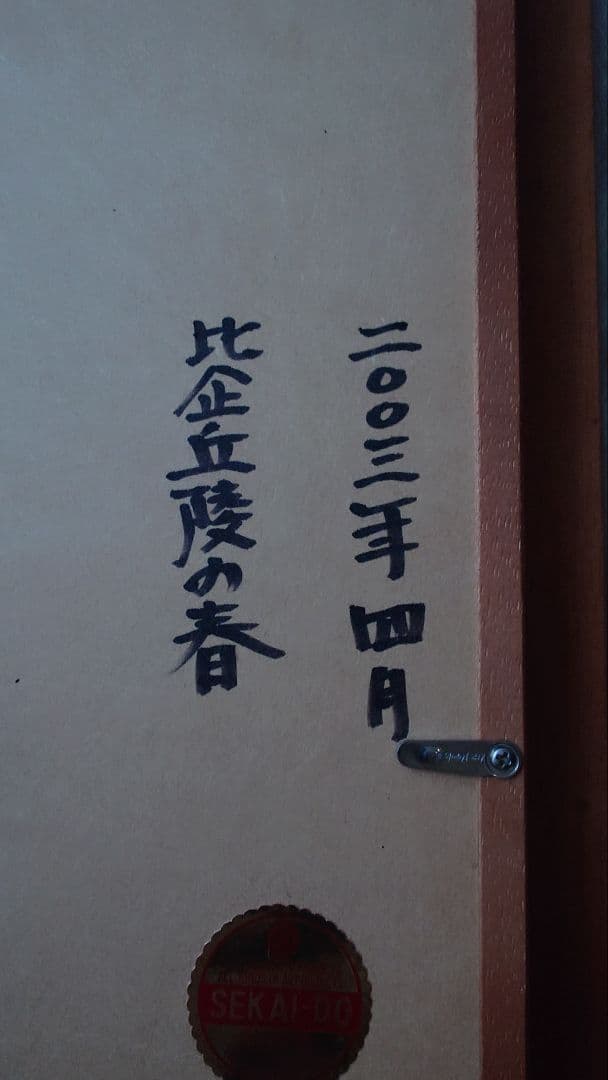 二〇〇三年 四月
比企丘陵の春
SEKAI-DO